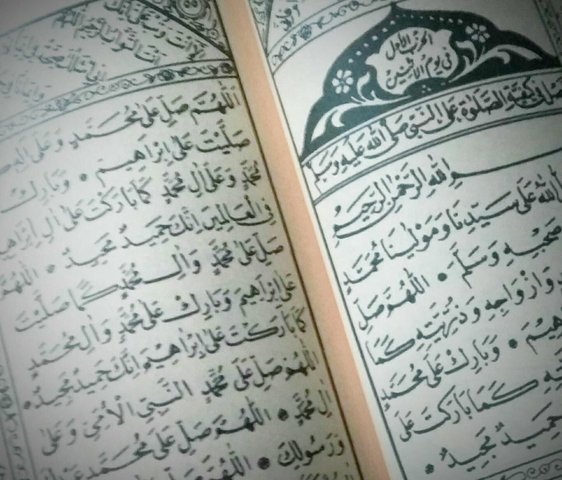 الحزب الأول
في يوم الاثنين
في كيفية الصلوة على النبي صلى الله عليه وسلم
الله الرحمن الرحيم
الله على سيدنا ومولينا محمد
صحبه وسلم • اللهم صل
وازواجه وذريته كما
وبارك على محمد
كما باركت على
حميد مجيد •
اللهم صل على محمد وعلى اله
صليت على ابراهيم • وبارك
محمد وعلى ال محمد كما باركت على ال ابراهيم
في العالمين انك حميد مجيد • اللهم
صل على محمد وال محمد كما صليت
على ابراهيم وبارك على محمد وال محمد
كما باركت على ابراهيم انك حميد مجيد •
اللهم صل على محمد النبي الامي وعلى
ال محمد • اللهم صل على محمد عبدك
ورسولك • اللهم